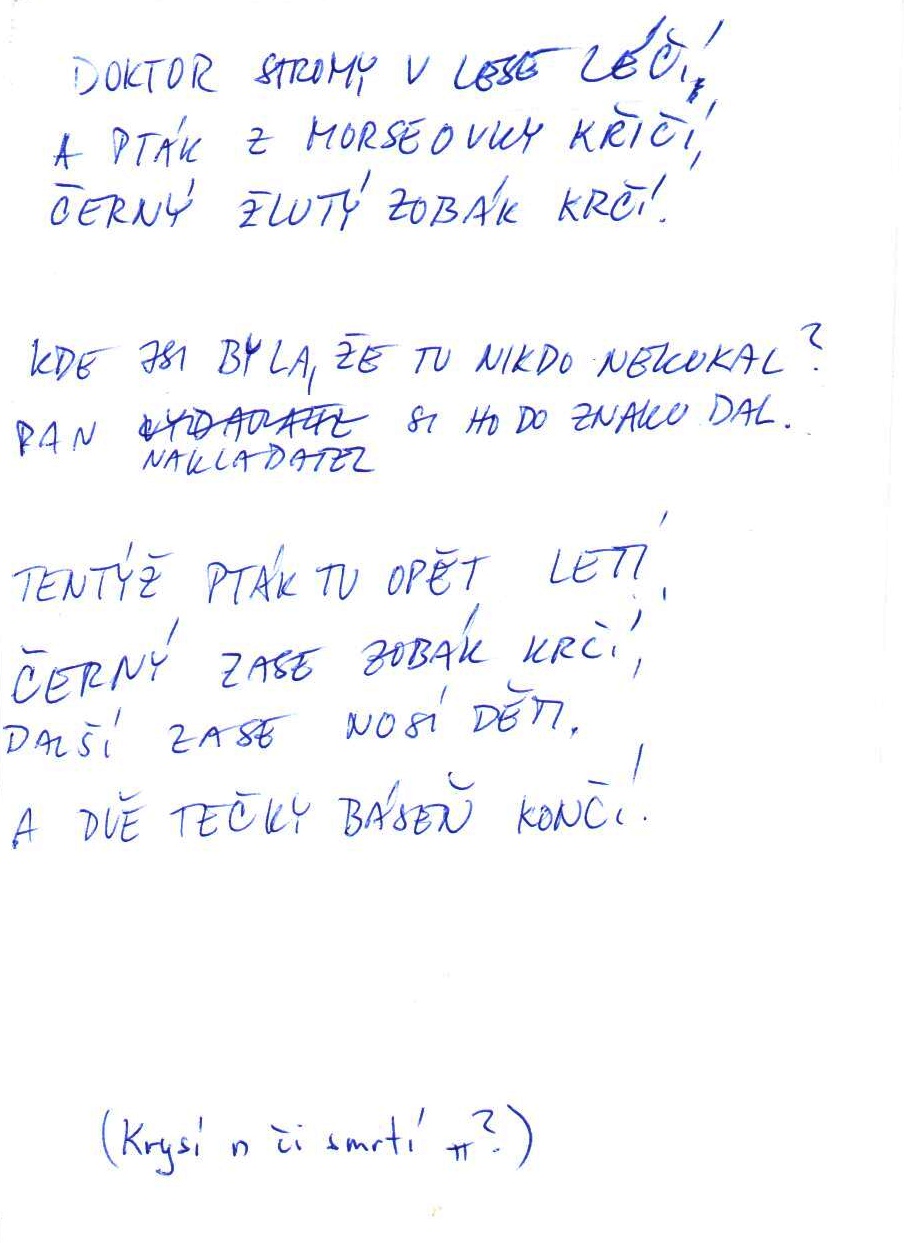 DOKTOR STROMY V LESE LÉČÍ,
A PTÁK Z MORSEOVKY KŘIČÍ,
ČERNÝ ŽLUTÝ ZOBÁK KRČÍ.
KDE JSI BYLA, ŽE TU NIKDO NEKUKAL?
PAN VYDAVATEL SI HO DO ZNAKU DAL.
NAKLADATEL
TENTÝŽ PTÁK TU OPĚT LETÍ,
ČERNÝ ZASE ZOBÁK KRČÍ,
DALŠÍ ZASE NOSÍ DĚTI.
A DVĚ TEČKY BÁSEŇ KONČÍ.
(Krysí n či smrtí π?)